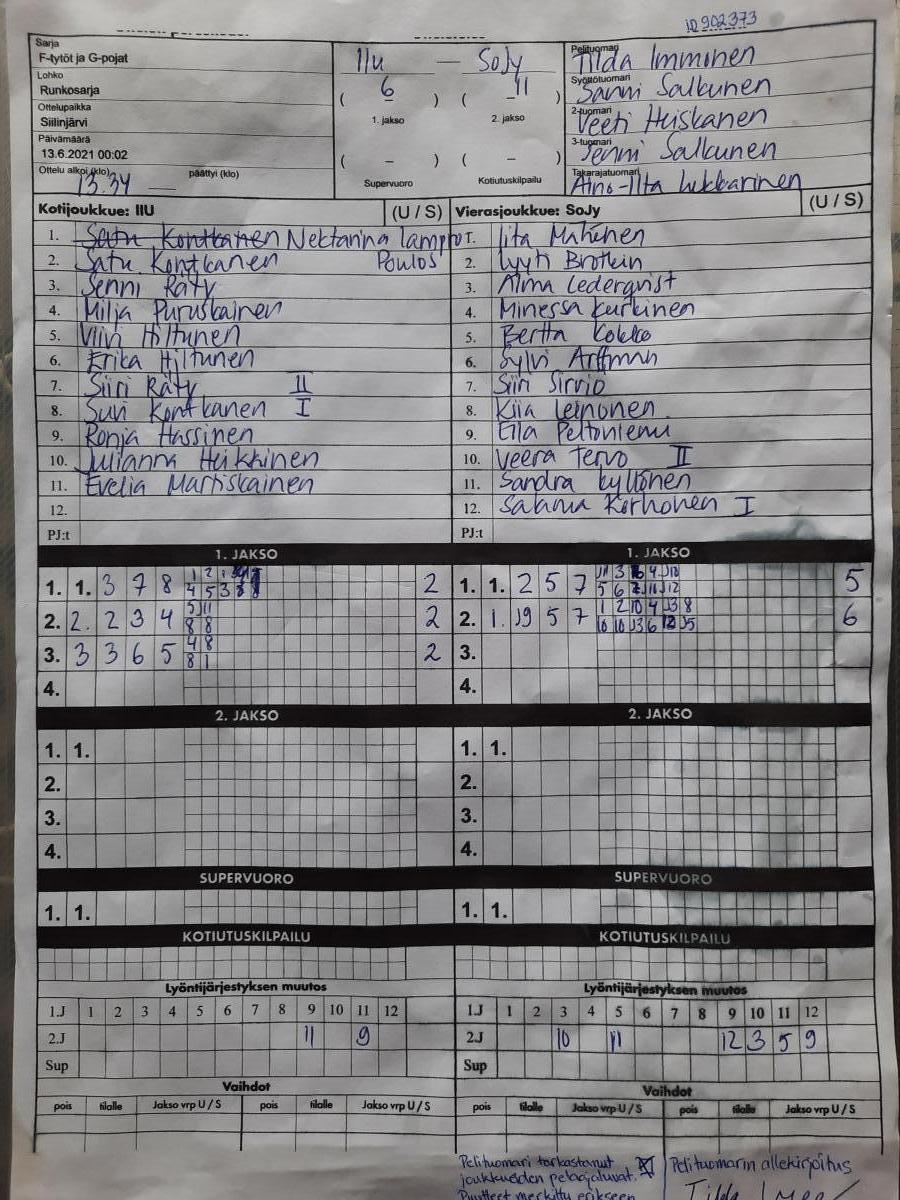 ID 902373
Sarja
F-tytöt ja G-pojat
Lohko
Runkosarja
Ottelupaikka
Siilinjärvi
Päivämäärä
13.6.2021 00:02
Ottelu alkoi (klo) päättyi (klo)
13.34 —
IIU — SoJy
( 6 – ) ( – 11 )
1. jakso 2. jakso
( – ) ( – )
Supervuoro Kotiutuskilpailu
Pelituomari
Tilda Immonen
Syöttötuomari
Sanni Salkunen
2-tuomari
Veeti Huskanen
3-tuomari
Jenni Salkunen
Takarajatuomari
Aino-Iita Lukkarinen
Kotijoukkue: IIU (U / S)
1. Satu Kontkanen Nektarina lampro
2. Satu Kontkanen Poulos
3. Senni Räty
4. Milja Puruskainen
5. Viivi Hiltunen
6. Erika Hiltunen
7. Siiri Räty II
8. Suvi Kontkanen I
9. Ronja Hassinen
10. Julianna Heikkinen
11. Evelia Martiskainen
12.
PJ:t
Vierasjoukkue: SoJy (U / S)
1. Iita Mähönen
2. Lyyti Brotkin
3. Alma Cederqvist
4. Minessa Kurkinen
5. Bertta Kokko
6. Sylvi Arffman
7. Siiri Sirviö
8. Kiia Leinonen
9. Eila Peltoniemi
10. Veera Tervo II
11. Sandra Kyllönen
12. Sanna Korhonen I
PJ:t
1. JAKSO
1. 1. 3 7 8 2
2. 2. 2 3 4 2
3. 3 3 6 5 2
4.
1. JAKSO
1. 1. 2 5 7 5
2. 1. 9 5 7 6
3.
4.
2. JAKSO
1. 1.
2.
3.
4.
2. JAKSO
1. 1.
2.
3.
4.
SUPERVUORO
1. 1.
SUPERVUORO
1. 1.
KOTIUTUSKILPAILU
KOTIUTUSKILPAILU
Lyöntijärjestyksen muutos
1.J 1 2 3 4 5 6 7 8 9 10 11 12
2.J 11 9
Sup
Lyöntijärjestyksen muutos
1.J 1 2 3 4 5 6 7 8 9 10 11 12
2.J 10 11 12 3 5 9
Sup
Vaihdot
pois tilalle Jakso vrp U / S pois tilalle Jakso vrp U / S
Vaihdot
pois tilalle Jakso vrp U / S pois tilalle Jakso vrp U / S
Pelituomari tarkastanut
joukkueiden pelaajaluvat.
Puutteet merkitty erikseen
Pelituomarin allekirjoitus